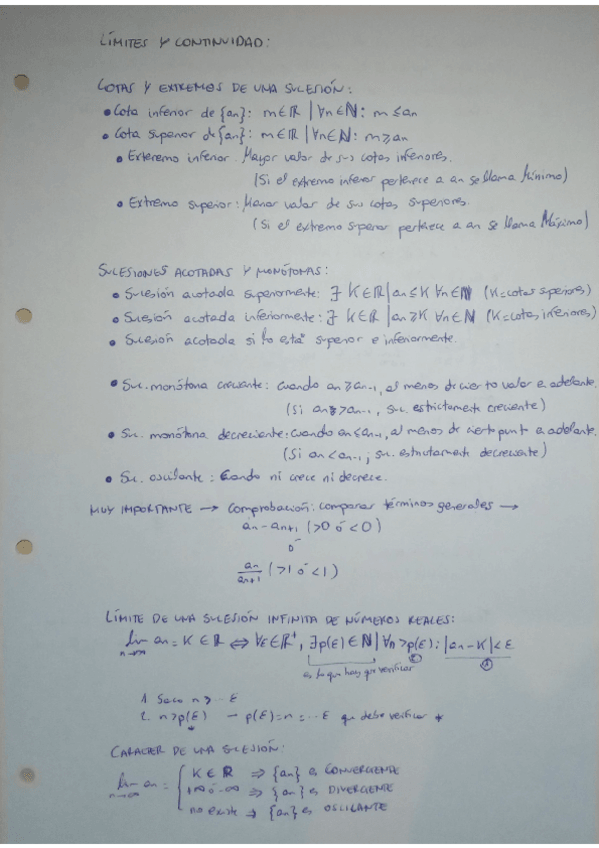 LÍMITES Y CONTINUIDAD:
COTAS Y EXTREMOS DE UNA SUCESIÓN:
• Cota inferior de {an}: m∈ℝ | ∀n∈ℕ: m ≤ an
• Cota superior de {an}: m∈ℝ | ∀n∈ℕ: m ≥ an
• Exteremo inferior. Mayor valor de sus cotas inferiores.
(Si el extremo inferior pertenece a an se llama Mínimo)
• Extremo superior: Menor valor de sus cotas superiores.
(Si el extremo superior pertenece a an se llama Máximo)
SUCESIONES ACOTADAS Y MONÓTONAS:
• Sucesión acotada superiormente: ∃ K∈ℝ | an ≤ K ∀n∈ℕ (K=cotas speriores)
• Sucesión acotada inferiormente: ∃ K∈ℝ | an ≥ K ∀n∈ℕ (K=cotas inferiores)
• Sucesión acotada si lo está superior e inferiormente.
• Suc. monótona creciente: cuando an ≥ an-1, al menos de cierto valor e adelante.
(Si an > an-1, suc. estrictamente creciente)
• Suc. monótona decreciente: cuando an ≤ an-1, al menos de cierto punt e adelante.
(Si an < an-1, suc. estrictamente decreciente)
• Suc. oscilante: Cuando ni crece ni decrece.
MUY IMPORTANTE → Comprobación: comparar términos generales →
an - an+1 (>0 ó <0)
ó
an/an+1 (>1 ó <1)
LÍMITE DE UNA SUCESIÓN INFINITA DE NÚMEROS REALES:
lim n→∞ an = K ∈ ℝ ⇔ ∀ε∈ℝ⁺, ∃p(ε)∈ℕ | ∀n > p(ε): |an - K| < ε
es lo que hay que verificar ② ①
1. Saco n > ... ε
2. n > p(ε) → p(ε) = n = ... ε que debe verificar *
*
CARACTER DE UNA SUCESIÓN:
lim n→∞ an = { K ∈ ℝ ⇒ {an} es CONVERGENTE
+∞ ó -∞ ⇒ {an} es DIVERGENTE
no existe → {an} es OSCILANTE